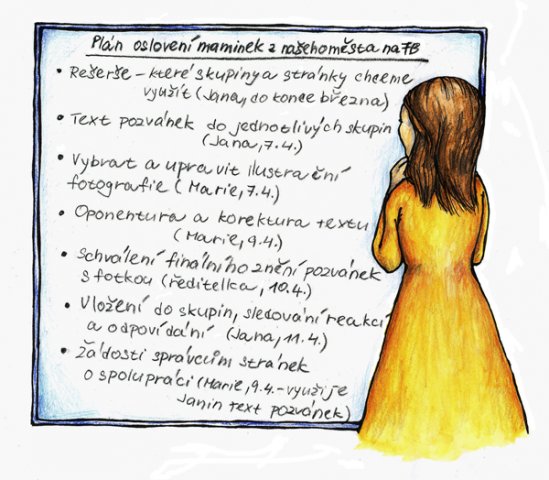 Plán oslovení maminek z našeho města na FB
• Rešerše – které skupiny a stránky chceme
využít (Jana, do konce března)
• Text pozvánek do jednotlivých skupin
(Jana, 7.4.)
• Vybrat a upravit ilustrační
fotografie (Marie, 7.4.)
• Oponentura a korektura textu
(Marie, 9.4.)
• Schválení finálního znění pozvánek
s fotkou (ředitelka, 10.4.)
• Vložení do skupin, sledování reakcí
a odpovídání (Jana, 11.4.)
• Žádosti správcům stránek
o spolupráci (Marie, 9.4. – využije
Janin text pozvánek)